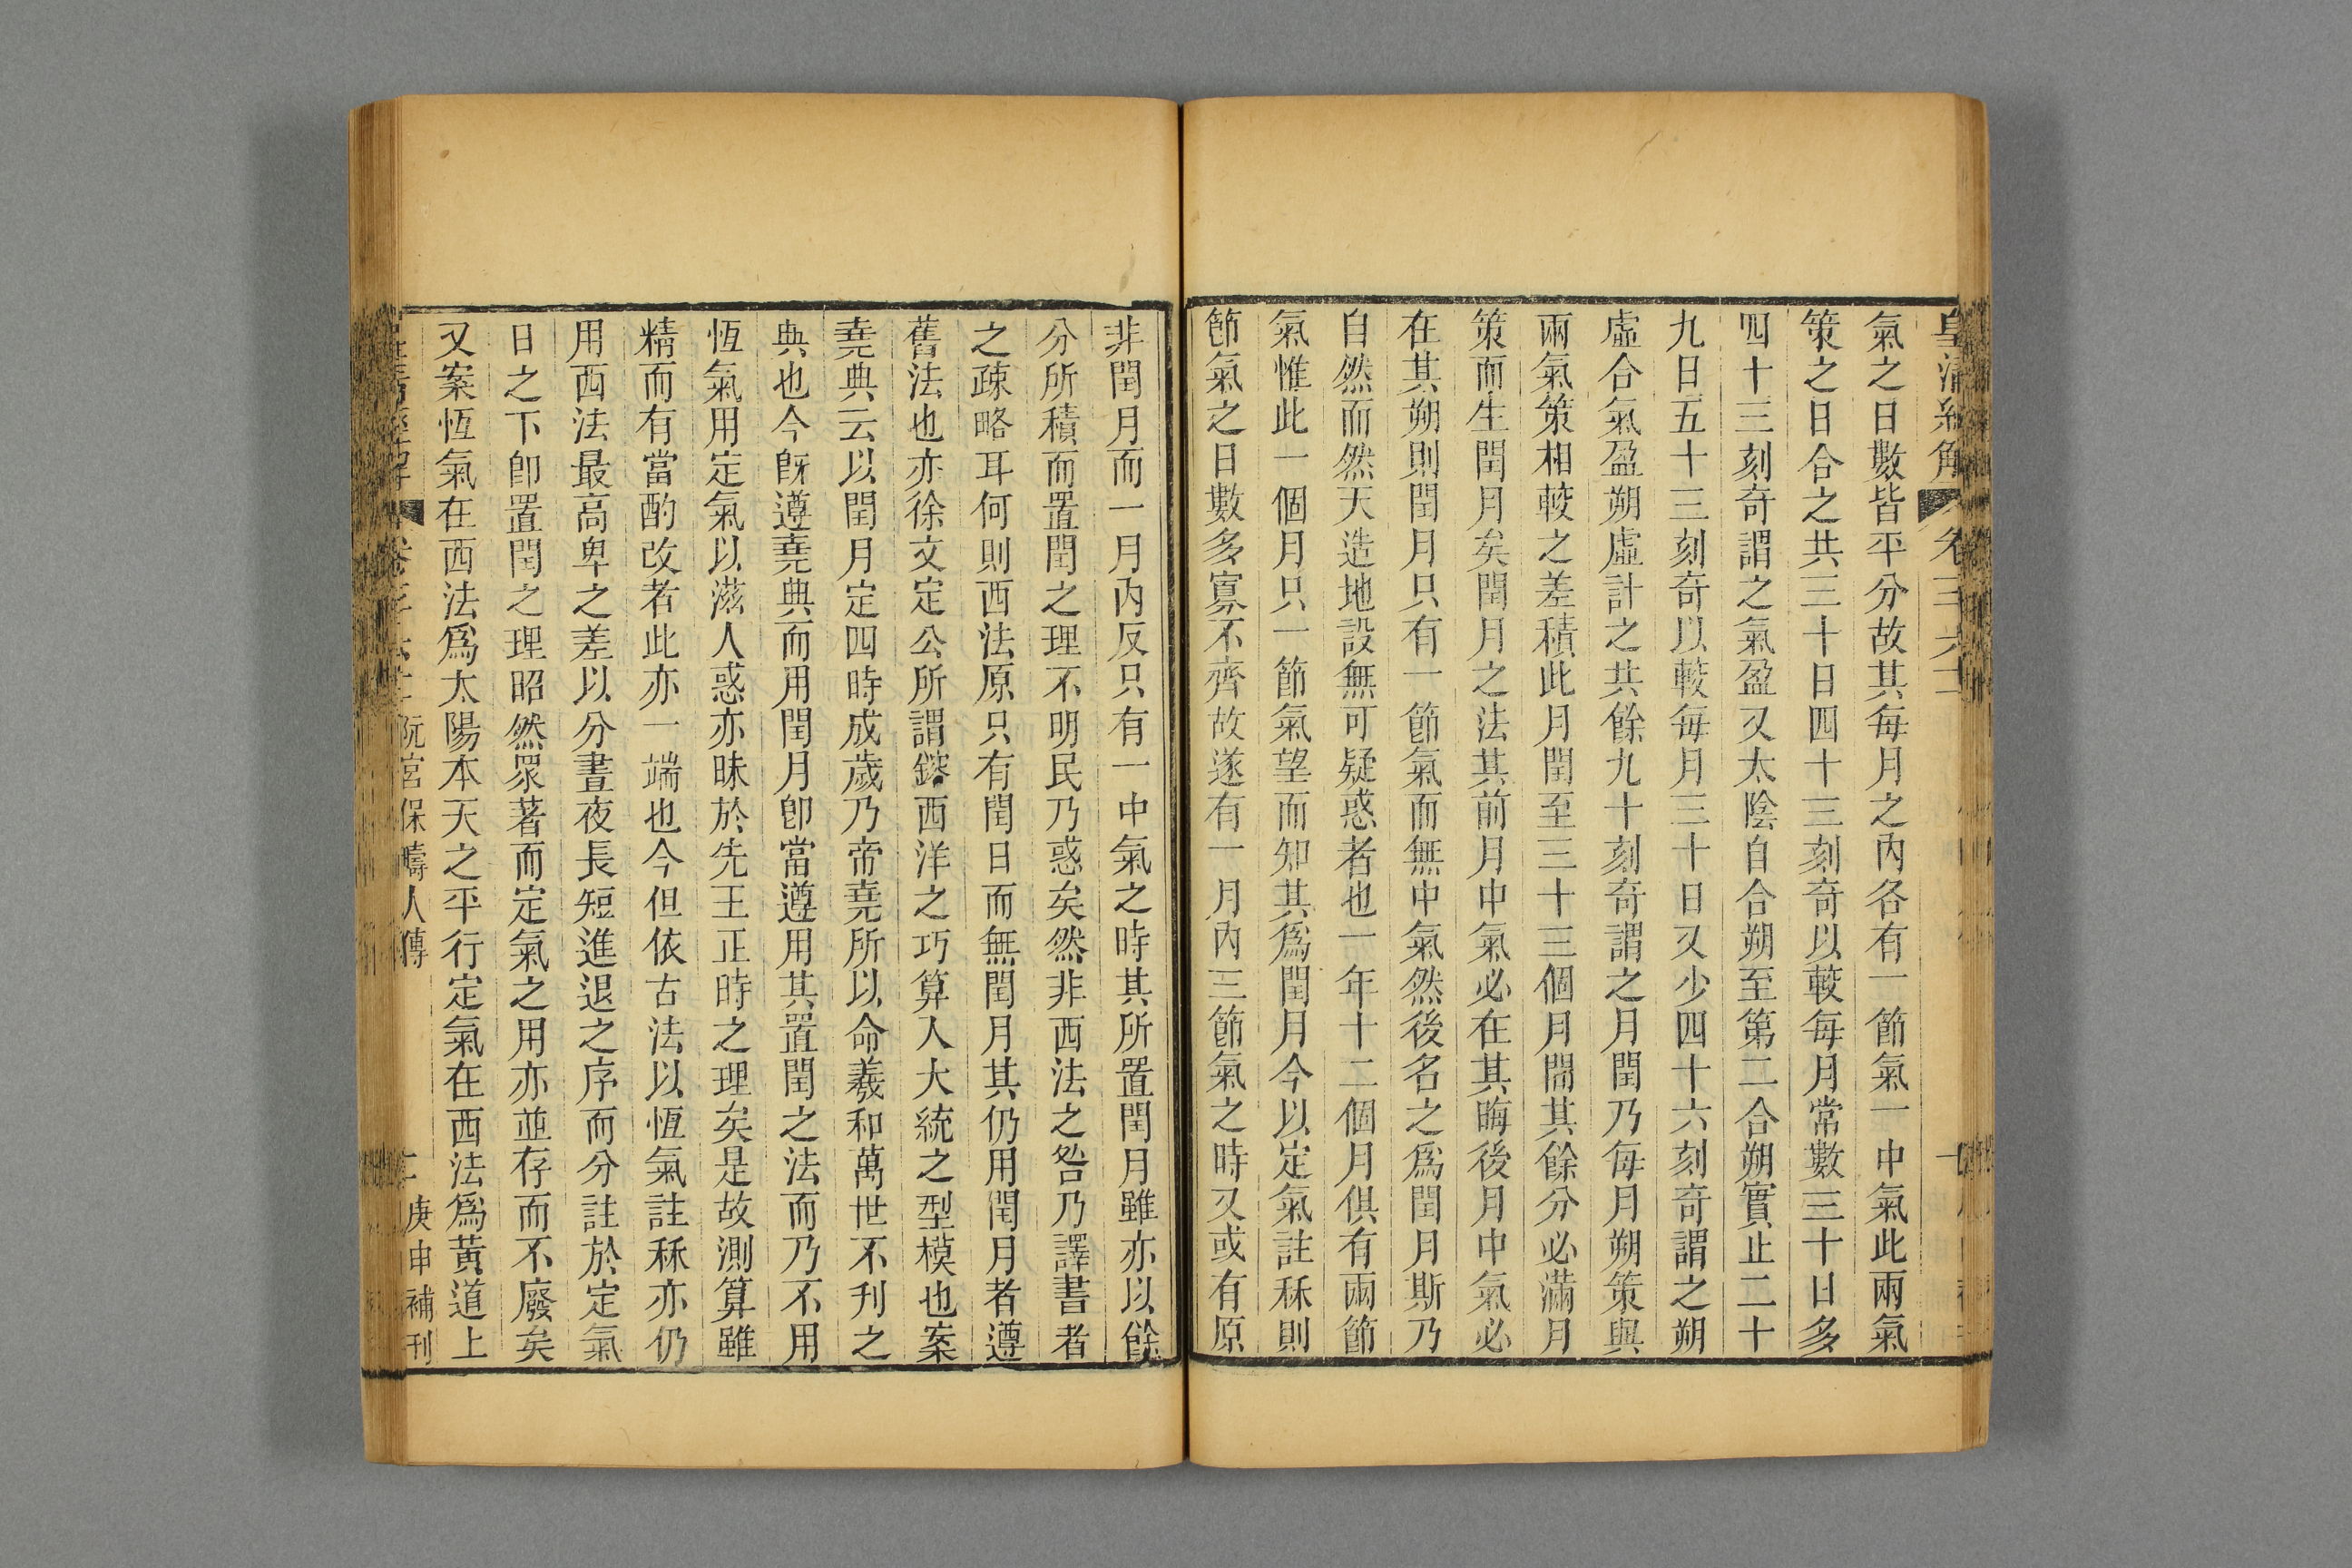 氣之日數皆平分故其每月之內各有一節氣一中氣此兩氣
策之日合之共三十日四十三刻奇以較每月常數三十日多
四十三刻奇謂之氣盈又太陰自合朔至第二合朔實止二十
九日五十三刻奇以較每月三十日又少四十六刻奇謂之朔
虛合氣盈朔虛計之共餘九十刻奇謂之月閏乃每月朔策與
兩氣策相較之差積此月閏至三十三個月閒其餘分必滿月
策而生閏月矣閏月之法其前月中氣必在其晦後月中氣必
在其朔則閏月只有一節氣而無中氣然後名之爲閏月斯乃
自然而然天造地設無可疑惑者也一年十二個月俱有兩節
氣惟此一個月只一節氣望而知其爲閏月今以定氣註秝則
節氣之日數多寡不齊故遂有一月內三節氣之時又或有原
非閏月而一月內反只有一中氣之時其所置閏月雖亦以餘
分所積而置閏之理不明民乃惑矣然非西法之咎乃譯書者
之疎略耳何則西法原只有閏日而無閏月其仍用閏月者遵
舊法也亦徐文定公所謂鎔西洋之巧算入大統之型模也案
堯典云以閏月定四時成歲乃帝堯所以命羲和萬世不刋之
典也今旣遵堯典而用閏月卽當遵用其置閏之法而乃不用
恆氣用定氣以滋人惑亦昧於先王正時之理矣是故測算雖
精而有當酌改者此亦一端也今但依古法以恆氣註秝亦仍
用西法最高卑之差以分晝夜長短進退之序而分註於定氣
日之下卽置閏之理昭然眾著而定氣之用亦並存而不廢矣
又案恆氣在西法爲太陽本天之平行定氣在西法爲黃道上
阮宮保疇人傳
庚申補刊